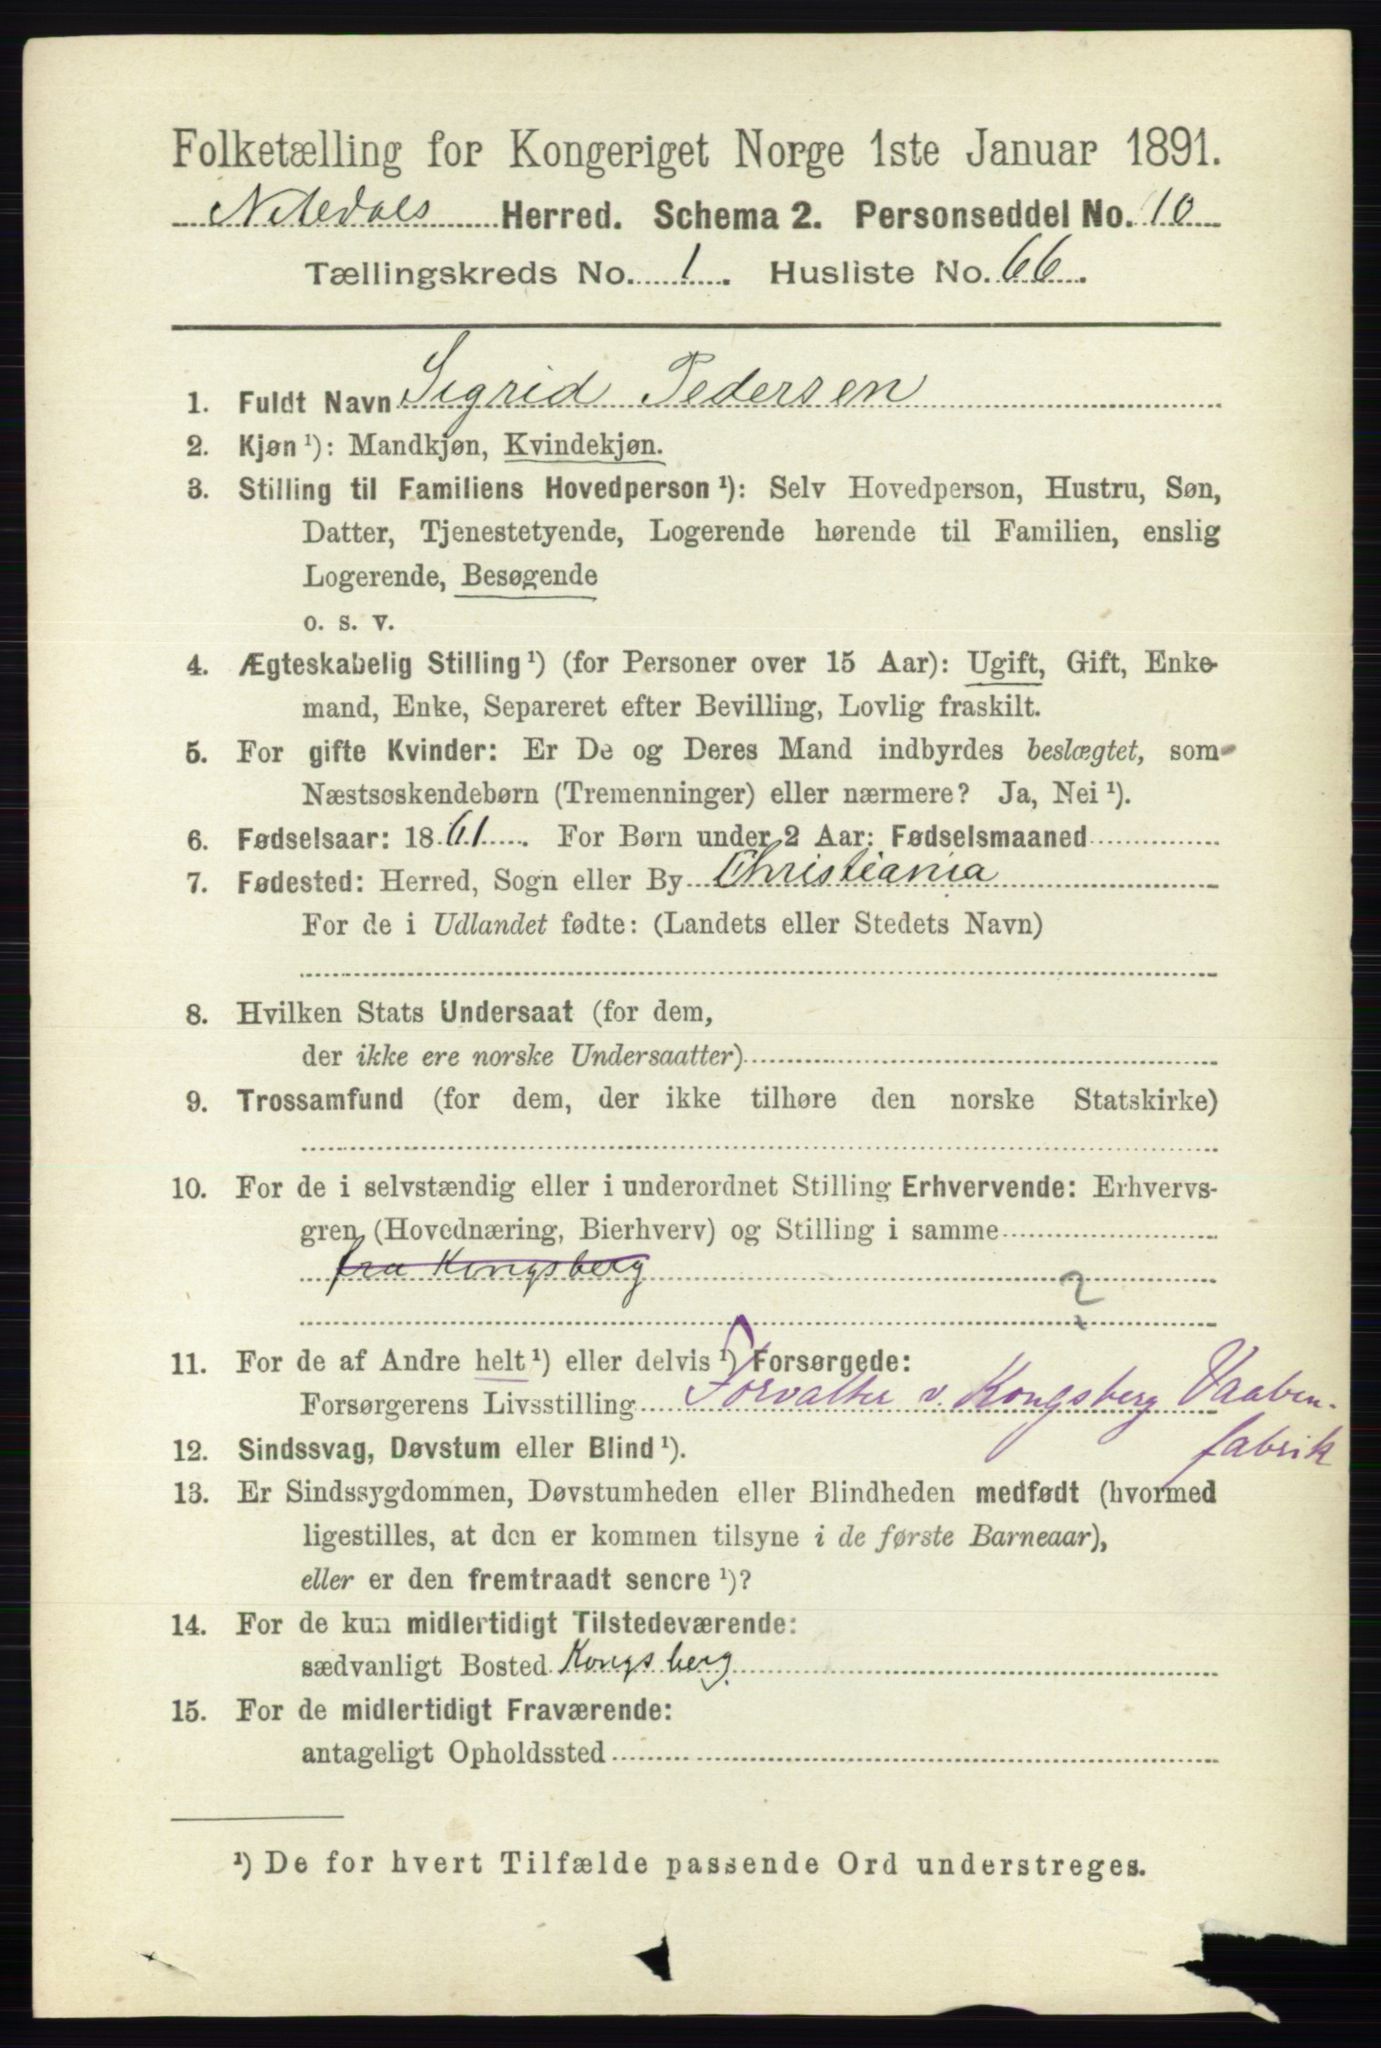 Folketælling for Kongeriget Norge 1ste Januar 1891.
Nitedals Herred. Schema 2. Personseddel No. 10
Tællingskreds No. 1. Husliste No. 66.
1. Fuldt Navn Sigrid Pedersen
2. Kjøn ¹): Mandkjøn, Kvindekjøn.
3. Stilling til Familiens Hovedperson ¹): Selv Hovedperson, Hustru, Søn,
Datter, Tjenestetyende, Logerende hørende til Familien, enslig
Logerende, Besøgende
o. s. v.
4. Ægteskabelig Stilling ¹) (for Personer over 15 Aar): Ugift, Gift, Enke-
mand, Enke, Separeret efter Bevilling, Lovlig fraskilt.
5. For gifte Kvinder: Er De og Deres Mand indbyrdes beslægtet, som
Næstsøskendebørn (Tremenninger) eller nærmere? Ja, Nei ¹).
6. Fødselsaar: 1861. For Børn under 2 Aar: Fødselsmaaned
7. Fødested: Herred, Sogn eller By Christiania
For de i Udlandet fødte: (Landets eller Stedets Navn)
8. Hvilken Stats Undersaat (for dem,
der ikke ere norske Undersaatter)
9. Trossamfund (for dem, der ikke tilhøre den norske Statskirke)
10. For de i selvstændig eller i underordnet Stilling Erhvervende: Erhvervs-
gren (Hovednæring, Bierhverv) og Stilling i samme
fra Kongsberg
?
11. For de af Andre helt ¹) eller delvis ¹) Forsørgede:
Forsørgerens Livsstilling Forvalter v. Kongsberg Vaaben-
fabrik
12. Sindssvag, Døvstum eller Blind ¹).
13. Er Sindssygdommen, Døvstumheden eller Blindheden medfødt (hvormed
ligestilles, at den er kommen tilsyne i de første Barneaar),
eller er den fremtraadt senere ¹)?
14. For de kun midlertidigt Tilstedeværende:
sædvanligt Bosted Kongsberg.
15. For de midlertidigt Fraværende:
antageligt Opholdssted
¹) De for hvert Tilfælde passende Ord understreges.